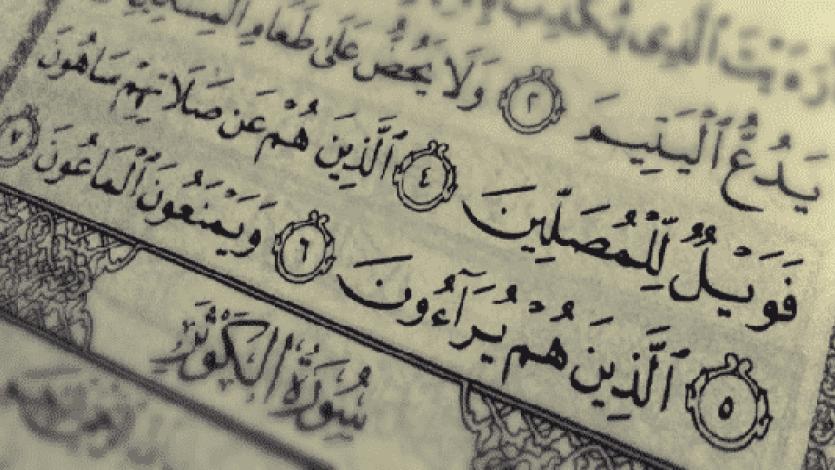 أَرَءَيْتَ ٱلَّذِى يُكَذِّبُ
يَدُعُّ ٱلْيَتِيمَ ٢ وَلَا يَحُضُّ عَلَىٰ طَعَامِ ٱلْمِسْكِينِ
فَوَيْلٌ لِّلْمُصَلِّينَ ٤ ٱلَّذِينَ هُمْ عَن صَلَاتِهِمْ سَاهُونَ
٥ ٱلَّذِينَ هُمْ يُرَآءُونَ ٦ وَيَمْنَعُونَ ٱلْمَاعُونَ ٧
سُورَةُ الْكَوْثَرِ